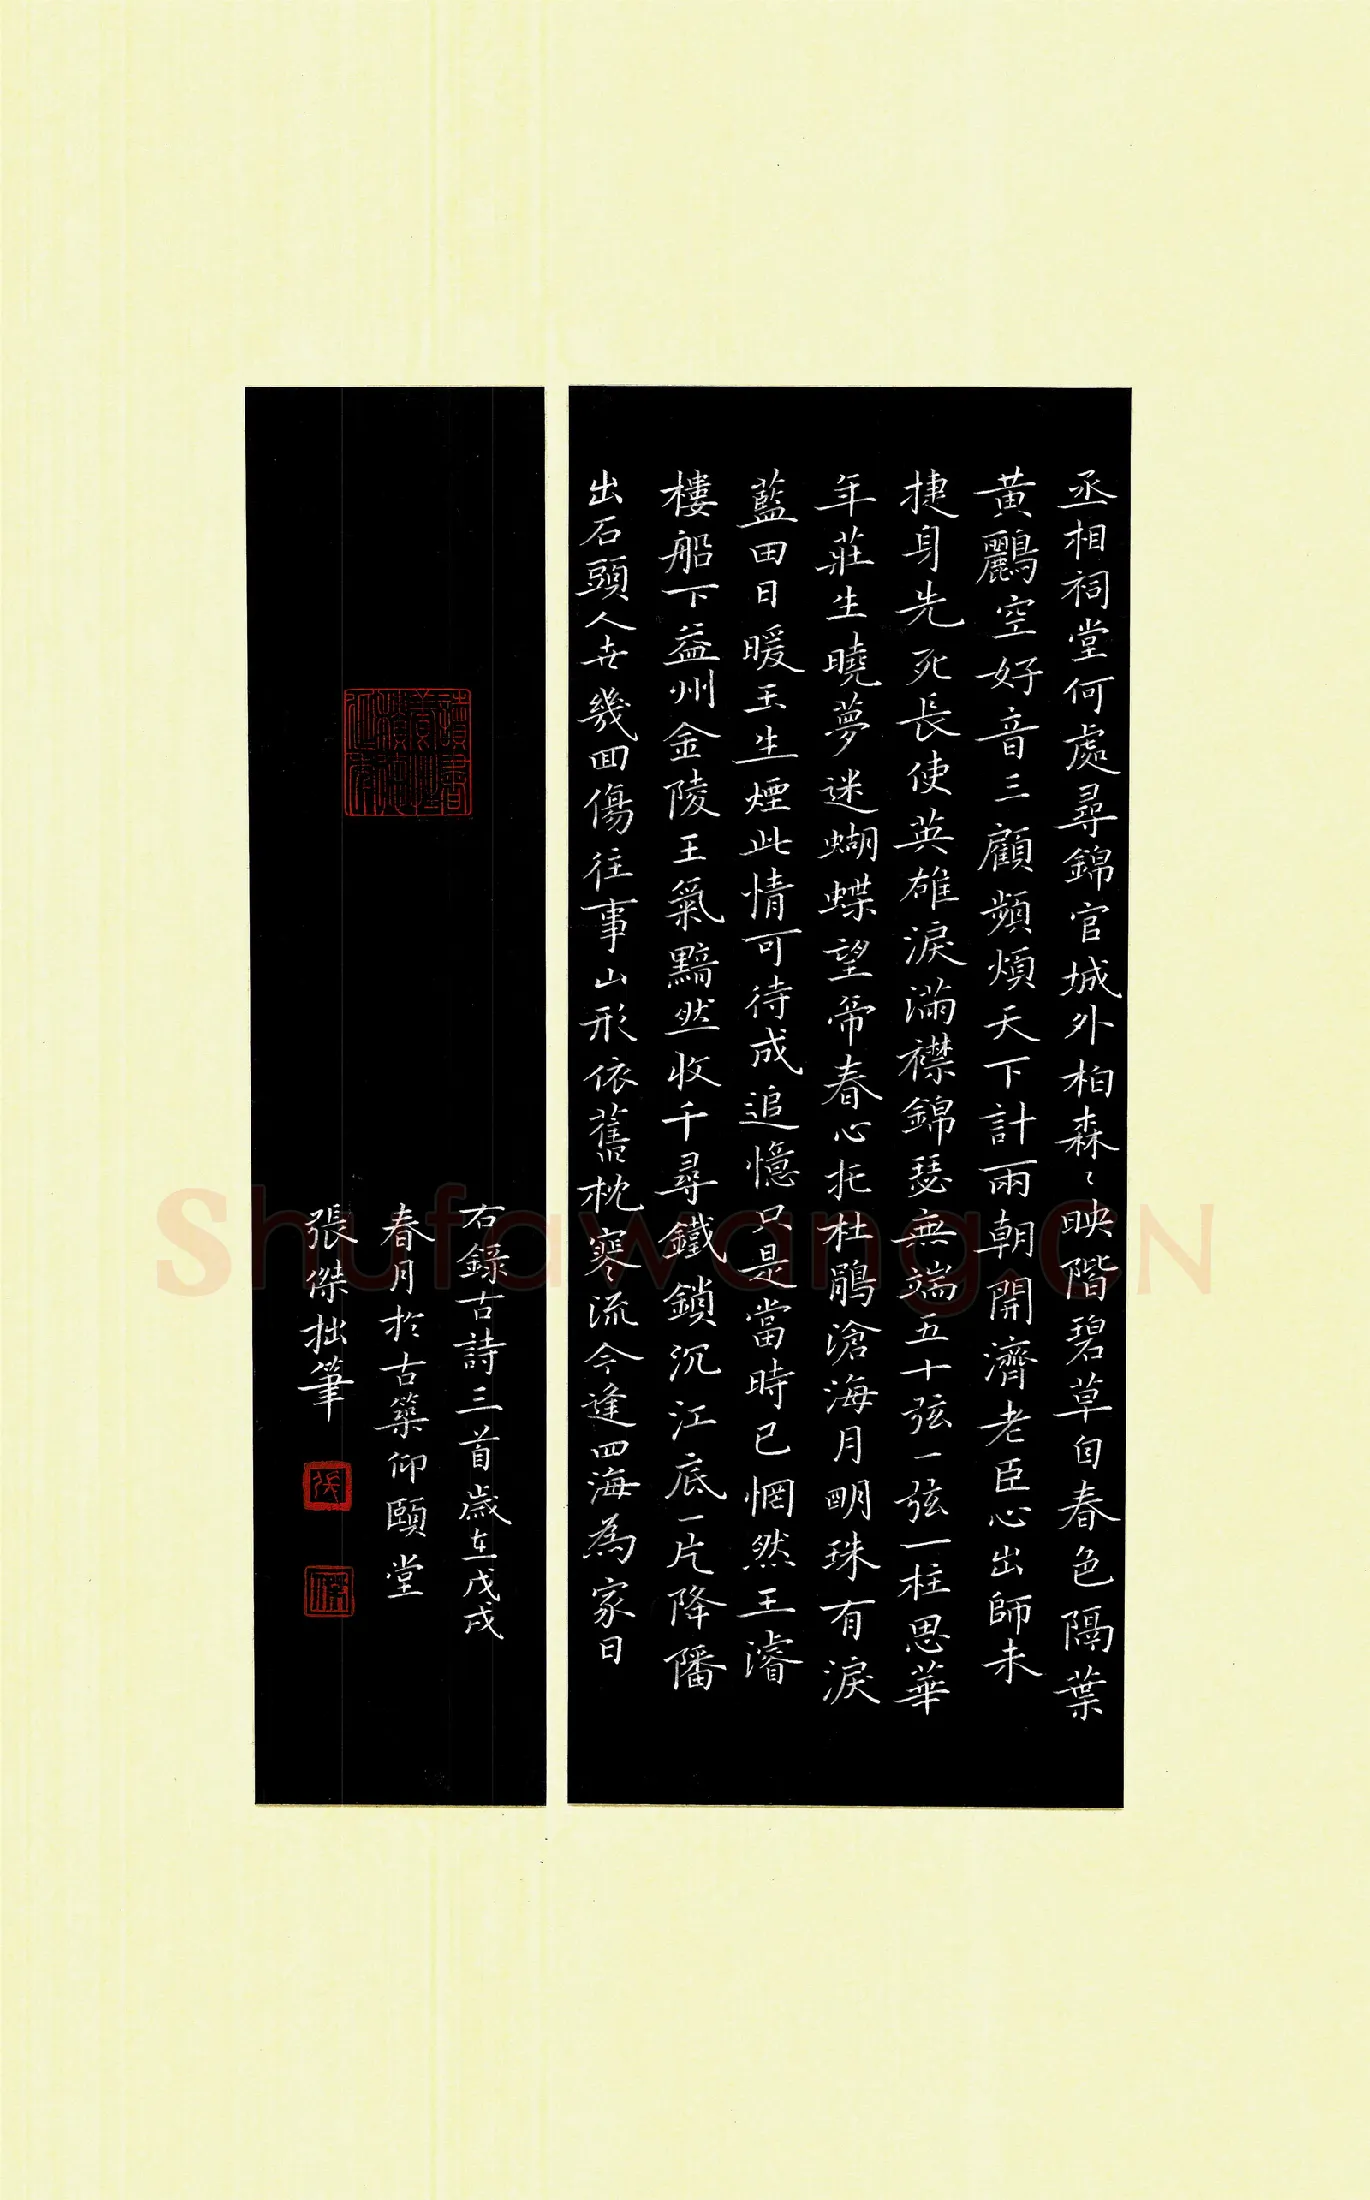 丞相祠堂何處尋錦官城外柏森〻映階碧草自春色隔葉
黃鸝空好音三顧頻煩天下計兩朝開濟老臣心出師未
捷身先死長使英雄淚滿襟錦瑟無端五十弦一弦一柱思華
年莊生曉夢迷蝴蝶望帝春心托杜鵑滄海月明珠有淚
藍田日暖玉生煙此情可待成追憶只是當時已惘然王濬
樓船下益州金陵王氣黯然收千尋鐵鎖沉江底一片降旛
出石頭人世幾回傷往事山形依舊枕寒流今逢四海為家日
右錄古詩三首歲在戊戌
春月於古築仰頤堂
張傑拙筆
shufawang.CN